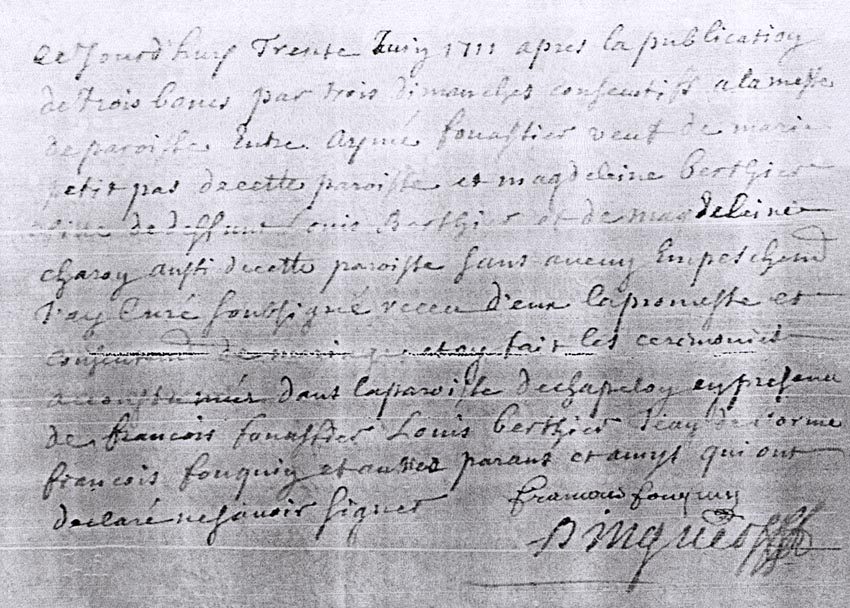 ce Jourd'huy Trente Juin 1711 apres la publication
de trois bancs par trois dimanches consecutifs a la messe
de paroisse Entre Aymé fouassier veuf de marie
petit pas de cette paroisse et magdeleine berthier
fille de deffunt Louis Berthier et de magdeleine
charoy aussi de cette paroisse sans aucun Empeschemt
J'ay Curé soubsigné receu d'eux la promesse et
consentemt de mariage et ay fait les ceremonies
accoustumées dans la paroisse de chapeloy en presence
de francois fouassier Louis berthier Jean de l'orme
francois fouquin et autres parans et amys qui ont
declaré ne savoir signer francois fouquin